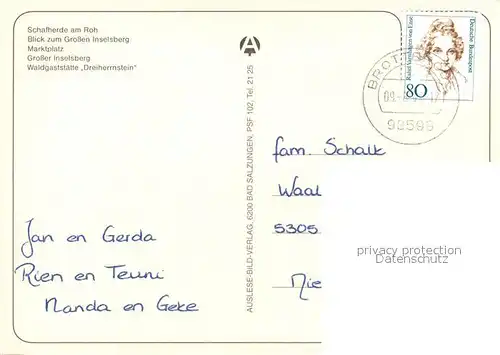 Schafherde am Roh
Blick zum Großen Inselsberg
Marktplatz
Großer Inselsberg
Waldgaststätte „Dreiherrnstein"
Jan en Gerda
Rien en Teuni
Nanda en Geke
AUSLESE-BILD-VERLAG, 6200 BAD SALZUNGEN, PSF 102, Tel. 21 25
Rahel Varnhagen von Ense
Deutsche Bundespost
80
BROT
98599
fam. Schalk
Waal
5305
Nie
privacy protection
Datenschutz